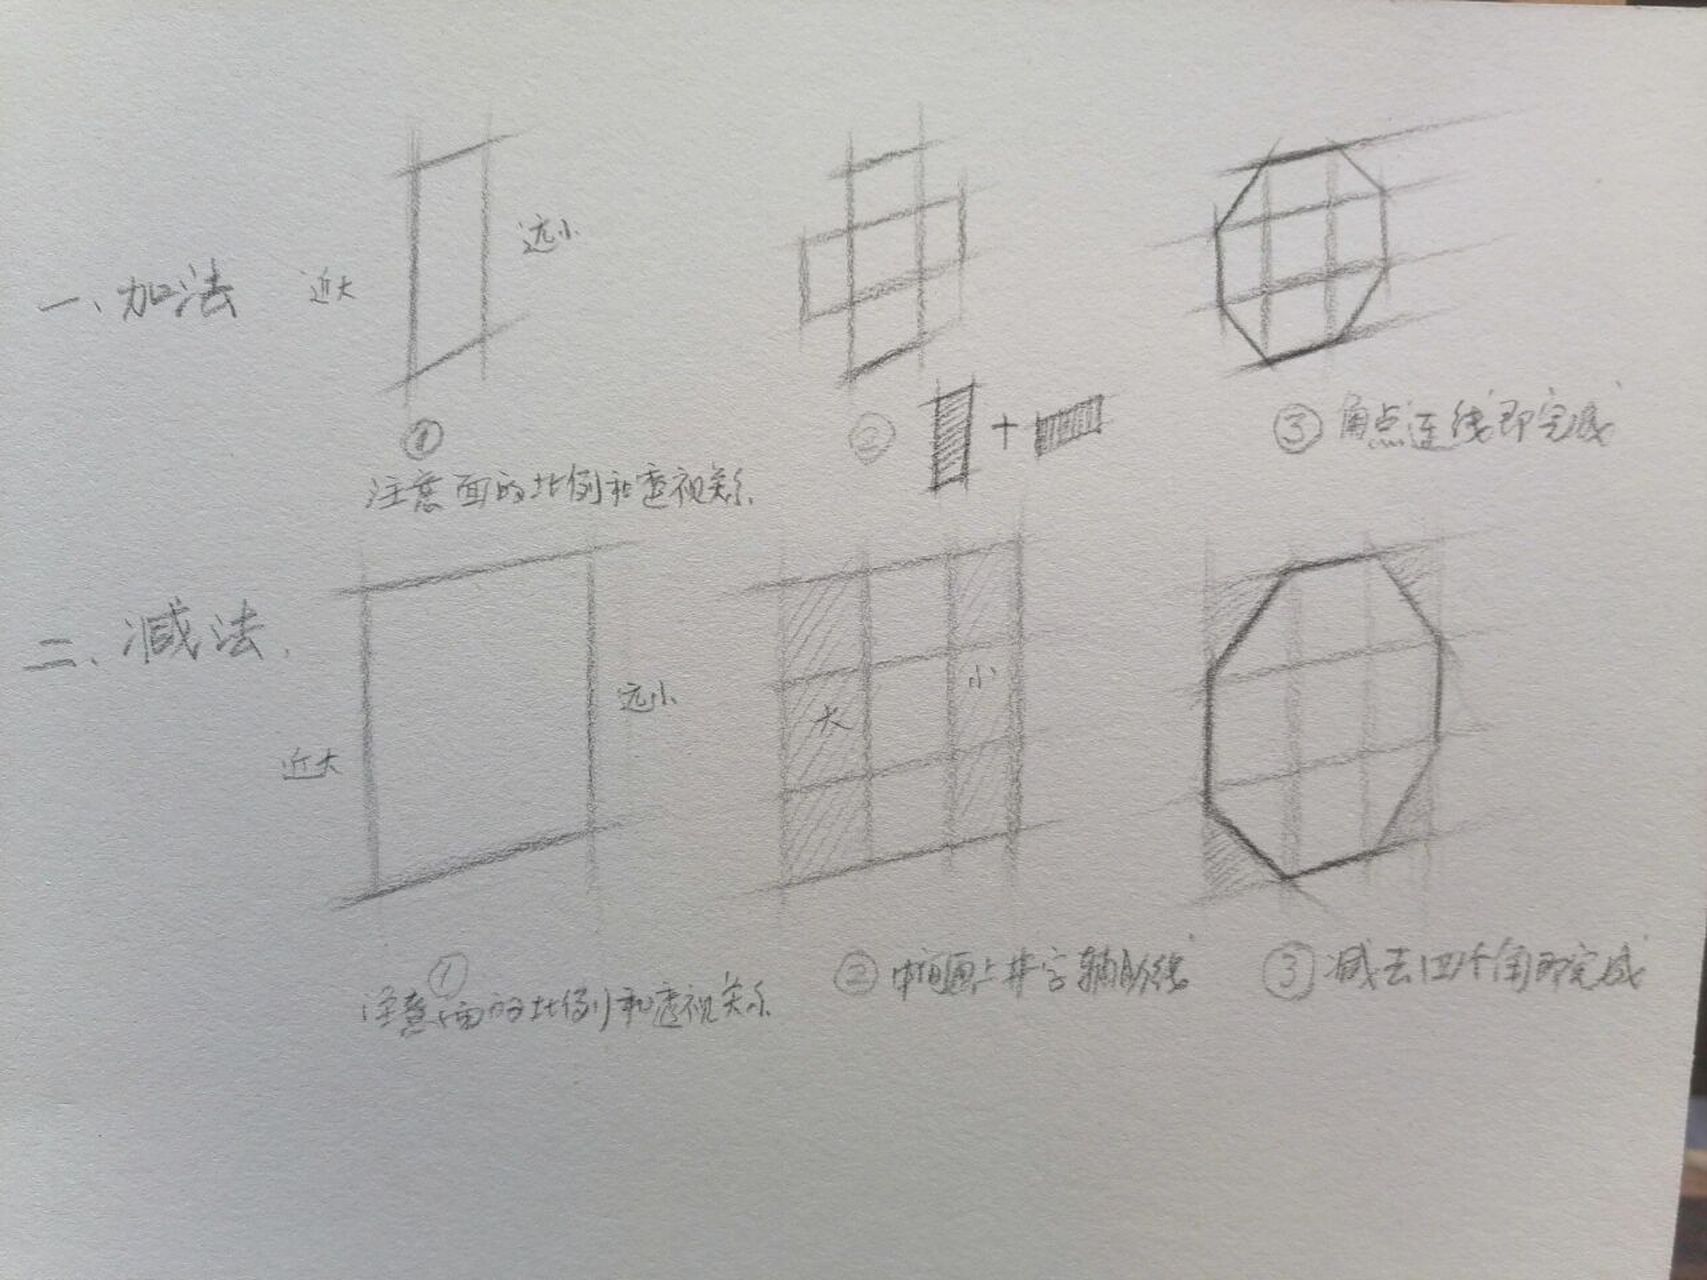 一、加法
近大
远小
①
注意面的比例和透视关系
②
+
③ 角点连线即完成
二、减法.
近大
远小
大
小
①
注意面的比例和透视关系
② 中间画上井字辅助线
③ 减去四个角即完成